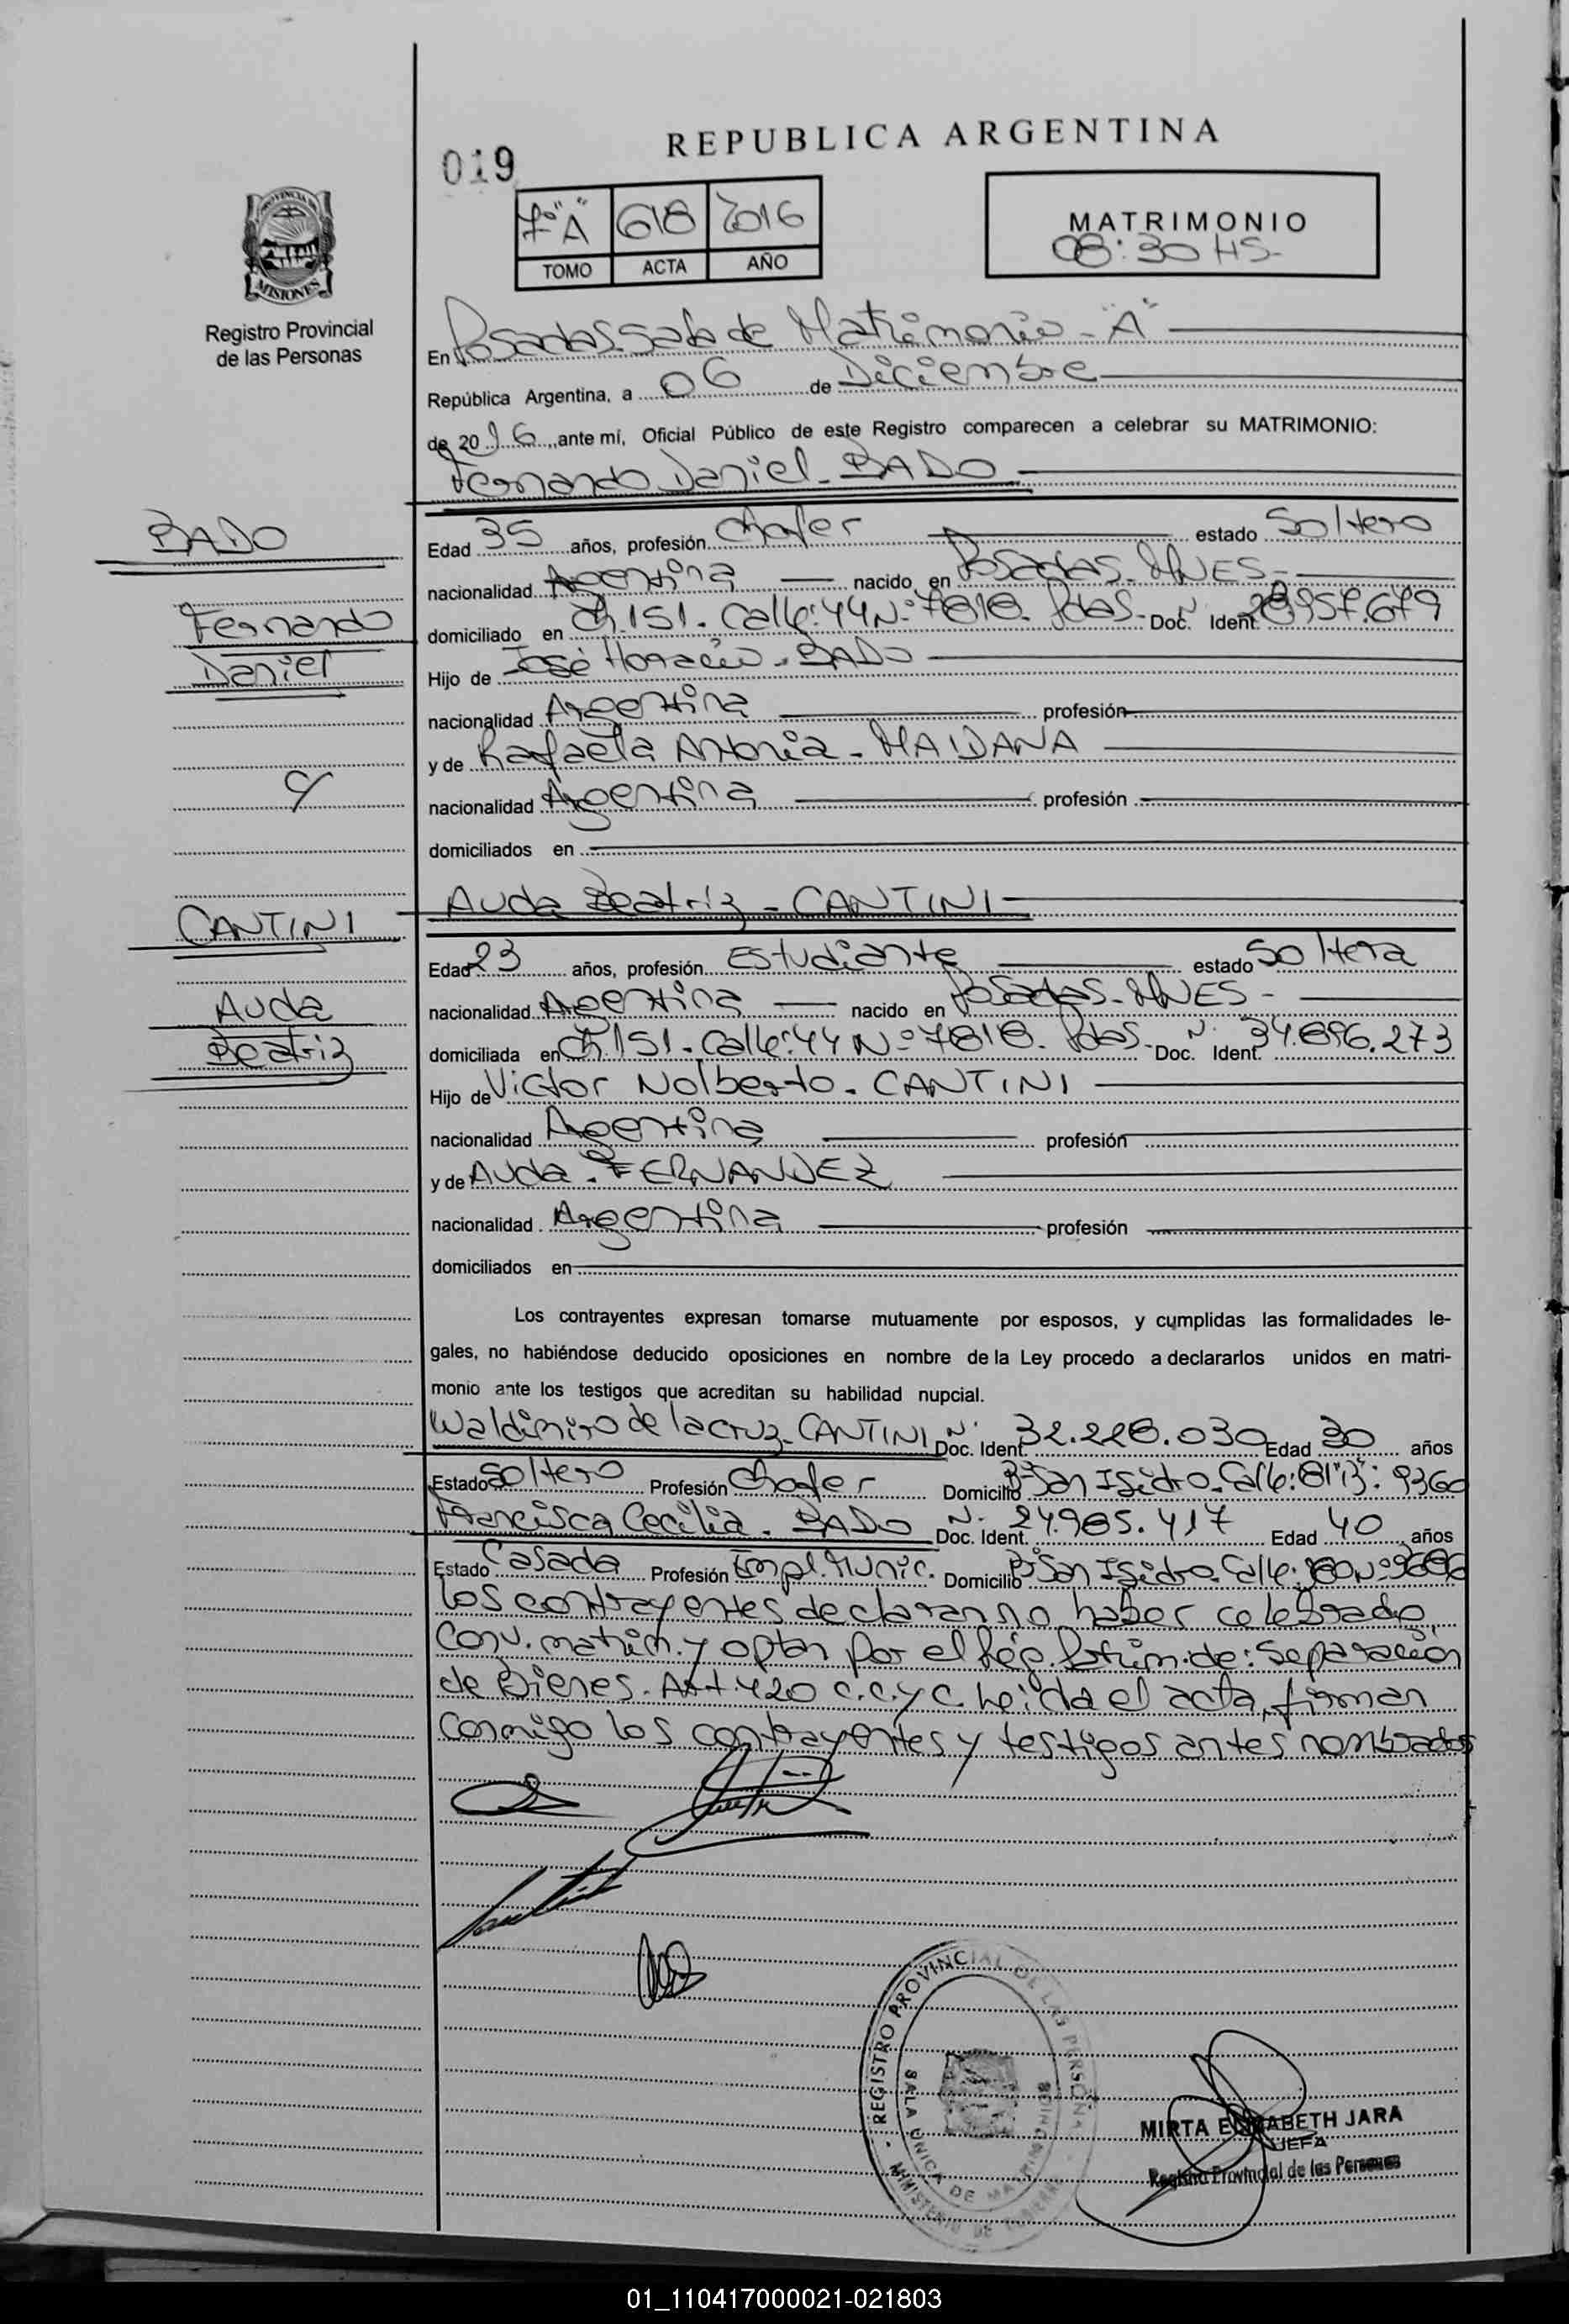 REPUBLICA ARGENTINA
019
7º "A" 618 2016
TOMO ACTA AÑO
MATRIMONIO
08:30 HS-
PROVINCIA DE
MISIONES
Registro Provincial
de las Personas
En Posadas. Sala de Matrimonio - "A"
República Argentina, a 06 de Diciembre
de 2016, ante mí, Oficial Público de este Registro comparecen a celebrar su MATRIMONIO:
Fernando Daniel - BADO
BADO
Fernando
Daniel
Edad 35 años, profesión Chofer estado Soltero
nacionalidad Argentina nacido en Posadas - MNES-
domiciliado en Ch. 151. Calle: 44 Nº 7818. Pdas. Doc. Ident. Nº 28.957.679
Hijo de José Horacio - BADO
nacionalidad Argentina profesión
y de Rafaela Antonia - MAIDANA
c/
nacionalidad Argentina profesión
domiciliados en
Auda Beatriz - CANTINI
CANTINI
Auda
Beatriz
Edad 23 años, profesión Estudiante estado Soltera
nacionalidad Argentina nacido en Posadas - MNES -
domiciliada en Ch. 151. Calle: 44 Nº 7818. Pdas. Doc. Ident. Nº 34.896.273
Hijo de Victor Nolberto - CANTINI
nacionalidad Argentina profesión
y de Auda - FERNANDEZ
nacionalidad Argentina profesión
domiciliados en
Los contrayentes expresan tomarse mutuamente por esposos, y cumplidas las formalidades le-
gales, no habiéndose deducido oposiciones en nombre de la Ley procedo a declararlos unidos en matri-
monio ante los testigos que acreditan su habilidad nupcial.
Waldimiro de la cruz - CANTINI Doc. Ident. Nº 32.228.030 Edad 30 años
Estado Soltero Profesión Chofer Domicilio Bº San Isidro. Calle: 9360
Francisca Cecilia - BADO Doc. Ident. Nº 24.985.417 Edad 40 años
Estado Casada Profesión Empl. Munic. Domicilio Bº San Isidro. Calle:
Los contrayentes declaran no haber celebrado
Conv. matrim. y optan por el Rég. Patrim. de: Separación
de Bienes. Art. 420 C.C. y C. Leida el acta, firman
conmigo los contrayentes y testigos antes nombrados
REGISTRO PROVINCIAL DE LAS PERSONAS
SALA UNICA DE MATRIMONIOS
MINISTERIO DE GOBIERNO
MIRTA ELIZABETH JARA
JEFA
Registro Provincial de las Personas
01_110417000021-021803